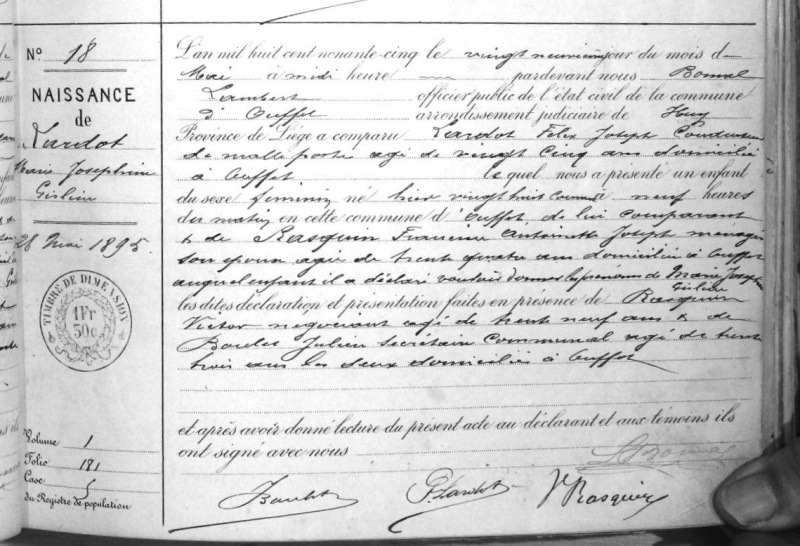 No 18
NAISSANCE
de
Lardot
Marie Josephine
Gislène
28 Mai 1895.
TIMBRE DE DIMENSION
1Fr
30c
Volume 1
Folio 181
Case 5
du Registre de population
L'an mil huit cent nonante-cinq le vingt neuvième jour du mois de
Mai à midi heure pardevant nous Bonnel
Lambert officier public de l'état civil de la commune
d'Ouffet arrondissement judiciaire de Huy
Province de Liége a comparu Lardot Felix Joseph Conducteur
de malle poste agé de vingt cinq ans domicilié
à Ouffet lequel nous a présenté un enfant
du sexe feminin né hier vingt huit courant à neuf heures
du matin en cette commune d'Ouffet de lui comparant
& de Rasquin Francine Antoinette Joseph menagère
son épouse agée de trente quatre ans domiciliée à Ouffet
auquel enfant il a déclaré vouloir donner les prénoms de Marie Josephine
Gislène
les dites déclaration et présentation faites en présence de Rasquin
Victor negociant agé de trente neuf ans & de
Boulet Julien Secrétaire communal agé de trente
trois ans les deux domiciliés à Ouffet
et après avoir donné lecture du présent acte au déclarant et aux témoins ils
ont signé avec nous
LBonnel
JBoulet
F Lardot
Vr Rasquin